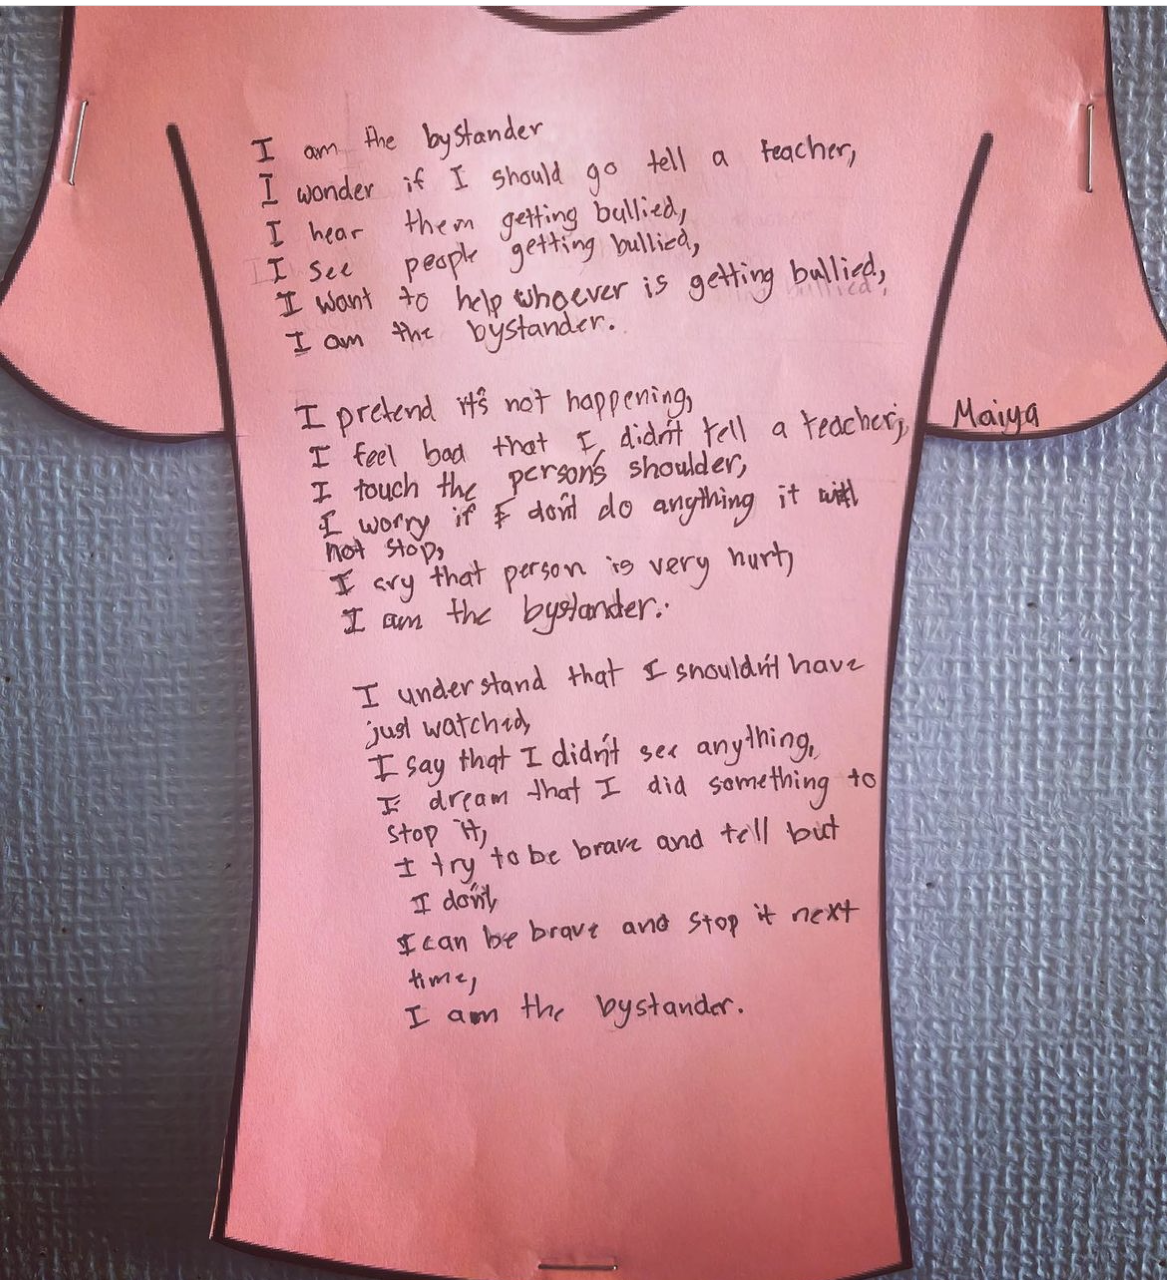 I am the bystander
I wonder if I should go tell a teacher,
I hear them getting bullied,
I see people getting bullied,
I want to help whoever is getting bullied,
I am the bystander.
I pretend it's not happening,
I feel bad that I didn't tell a teacher,
Maiya
I touch the person's shoulder,
I worry if I don't do anything it will
not stop,
I cry that person is very hurt,
I am the bystander.
I understand that I shouldn't have
just watched,
I say that I didn't see anything,
I dream that I did something to
stop it,
I try to be brave and tell but
I don't,
I can be brave and stop it next
time,
I am the bystander.